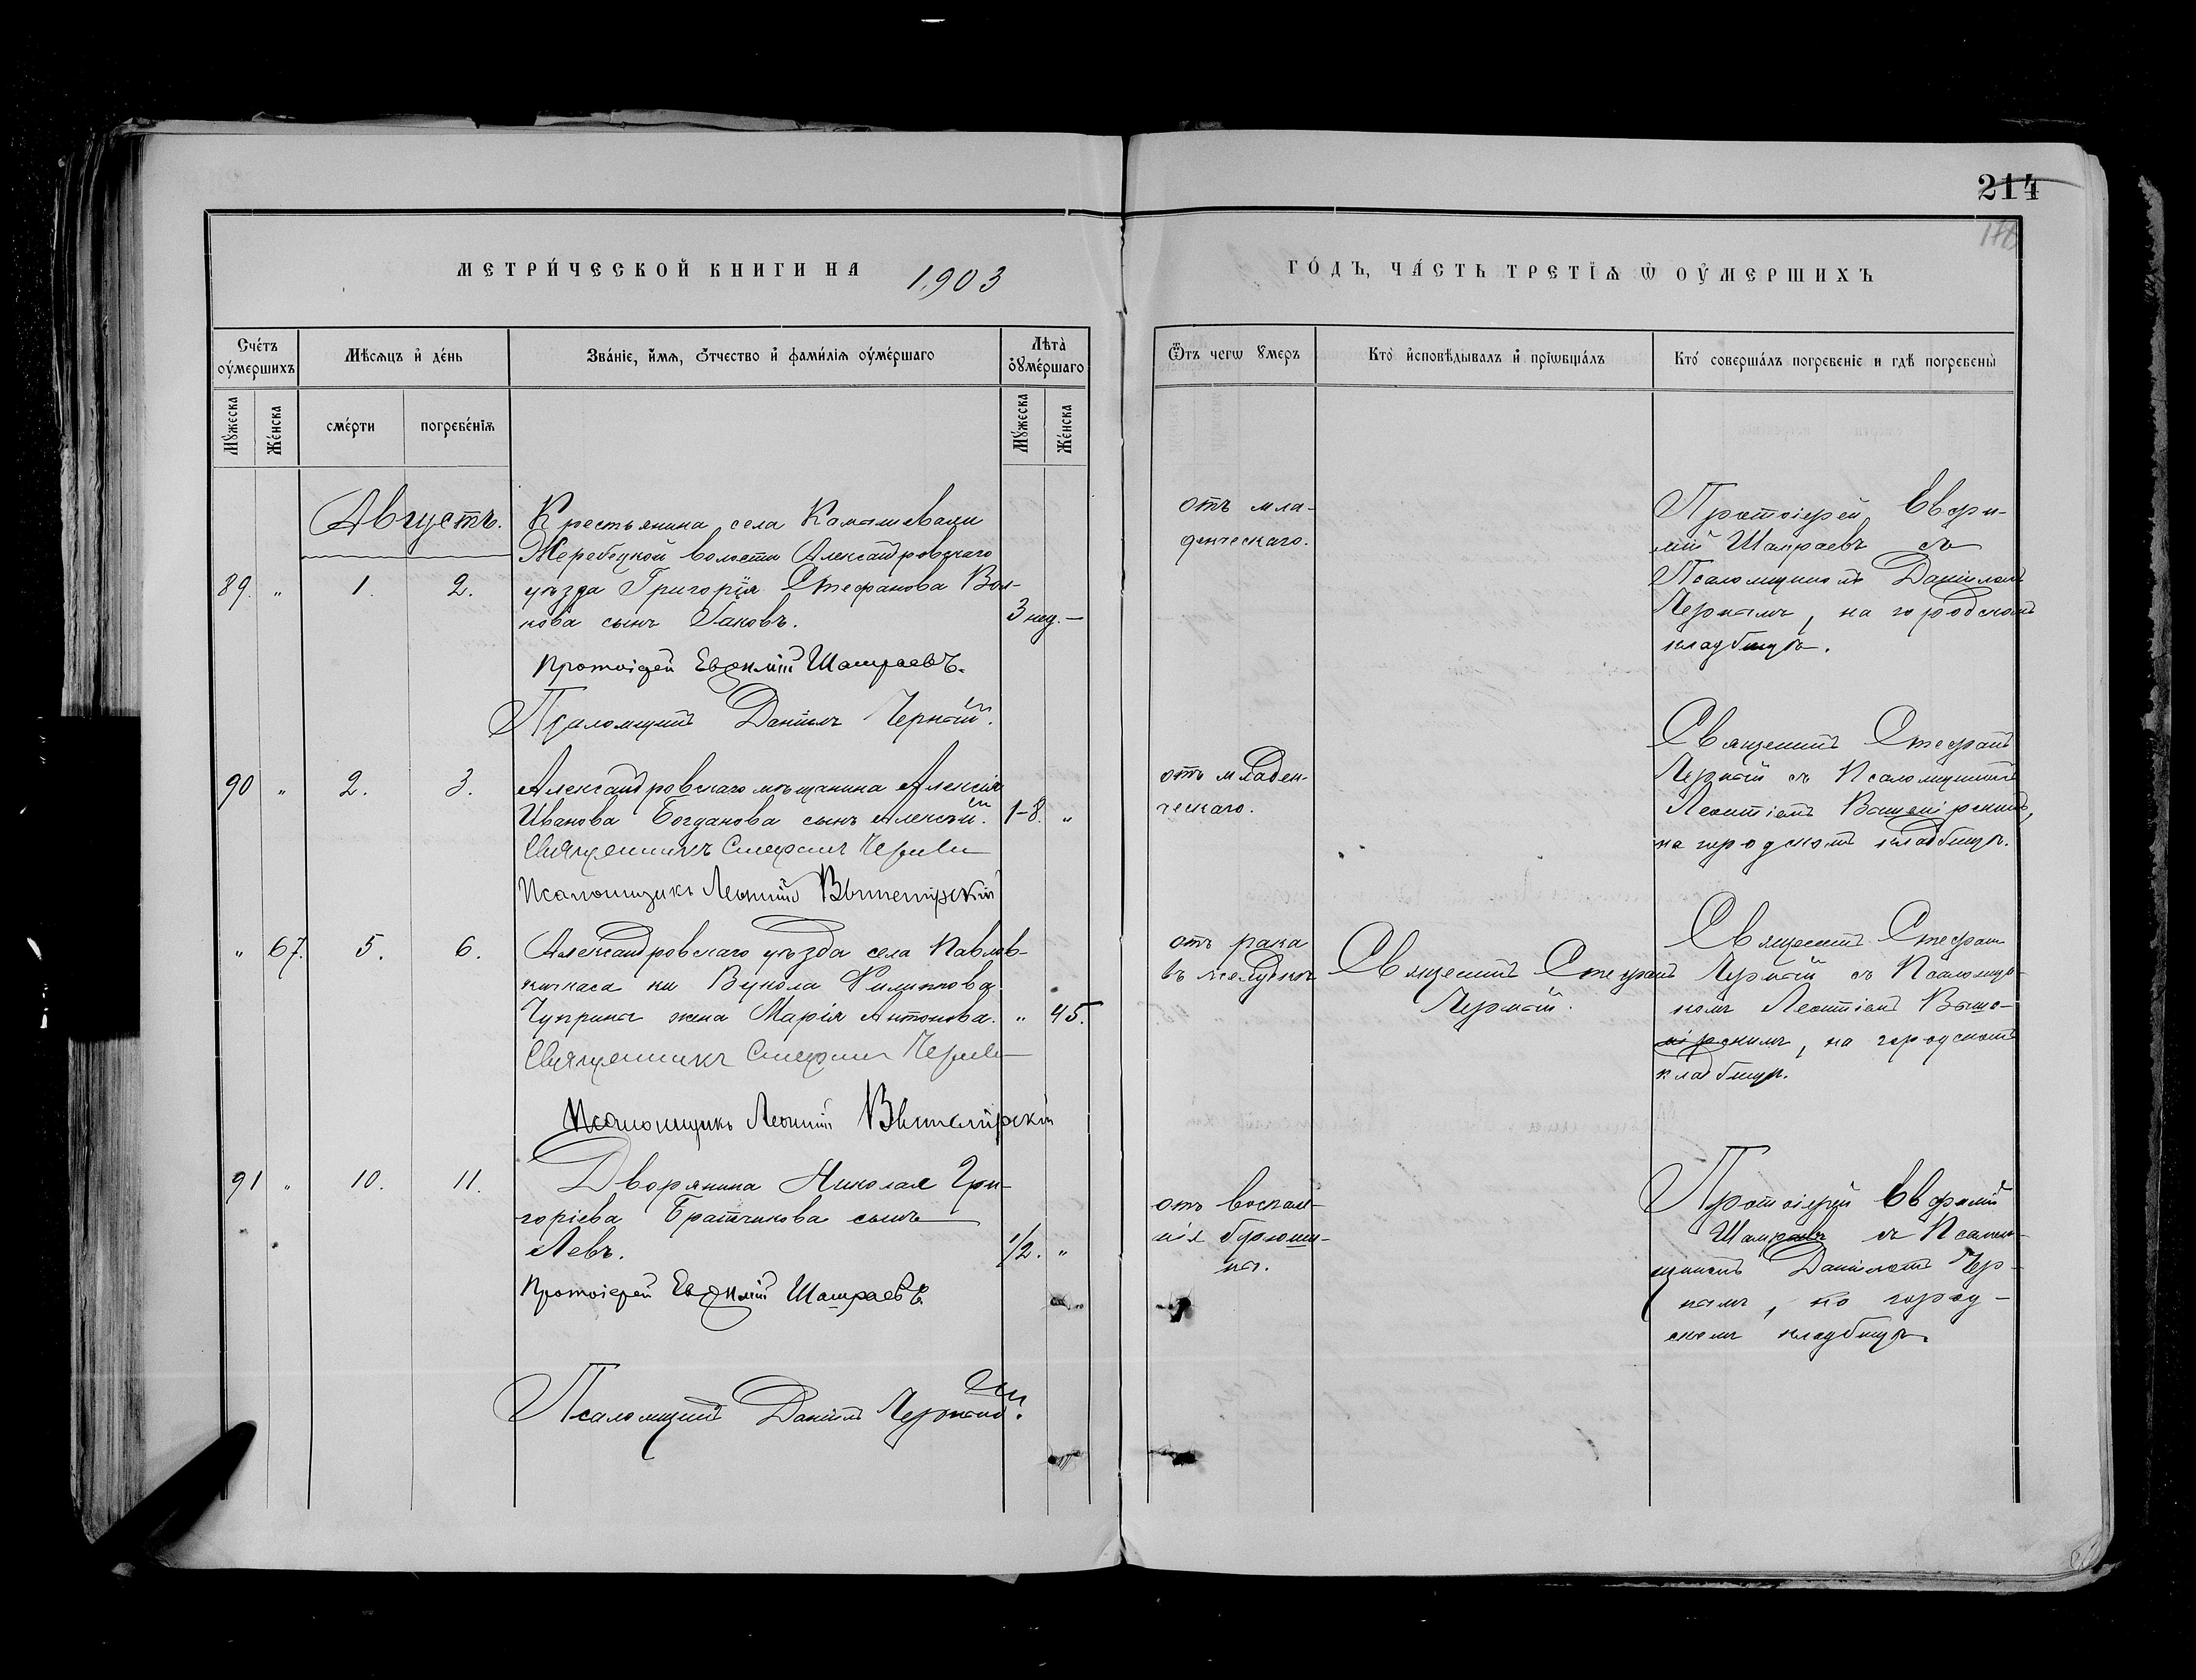 214
МЕТРИ́ЧЕСКОЙ КНИГИ НА 1903
ГО́ДЪ, ЧА́СТЬ ТРЕТІѦ Ѡ ОУ҆МЕРШИХЪ
Сче́тъ оу҆́мершихъ
Мѣсѧцъ и҆ де́нь
Зва́нїе, и҆́мѧ, ѻ҆́тчество и҆ фами́лїѧ оу҆ме́ршаго
Лѣта̀ оу҆ме́ршаго
Ѿтъ чегѡ ᲂумеръ
Кто̀ и҆сповѣ́дывалъ и҆ прїѡбща́лъ
Кто́ совершáлъ погребенїе и гдѣ̀ погребены̀
Мꙋ́жеска
Же́нска
сме́рти
погребе́нїѧ
Мꙋ́жеска
Же́нска
Августъ.
Крестьянина села
Жеребецкой волости Александровскаго
89. " 1. 2. уѣзда Григорія Стефанова Вол-
кова сынъ Іаковъ. 3 нед. —
Протоіерей Евѳимій Шамраевъ.
Псаломщикъ Даніилъ Черный.
от мла-
денческаго.
Протоіерей Евфи-
мій Шамраевъ съ
Псаломщикомъ Даніиломъ
Чернымъ, на городскомъ
кладбищѣ.
90 " 2. 3. Александровскаго мѣщанина Алексія
Иванова Богданова сынъ Алексѣй. 1-8. "
Священникъ Стефанъ Черный
Псаломщикъ Леонтій Вышемірскій
отъ младен-
ческаго.
Священникъ Стефанъ
Черный съ Псаломщикомъ
Леонтіемъ Вышемірскимъ,
на городскомъ кладбищѣ.
" 67. 5. 6. Александровскаго уѣзда села Павлов-
ки Вукола Филиппова
Чуприна жена Марія Антонова. " 45.
Священникъ Стефанъ Черный
Псаломщикъ Леонтій Вышемірскій
отъ рака
въ желудкѣ
Священникъ Стефанъ
Черный.
Священникъ Стефанъ
Черный съ Псаломщи-
комъ Леонтіемъ Выше-
мірскимъ, на городскомъ
кладбищѣ.
91 " 10. 11. Дворянина Николая Гри-
горіева Братчикова сынъ
Левъ. 1/2. "
Протоіерей Евѳимій Шамраевъ.
Псаломщикъ Даніилъ Черный.
отъ воспале-
нія брюши-
ны.
Протоіерей Евфимій
Шамраевъ съ Псалом-
щикомъ Даніиломъ Чер-
нымъ, на город-
скомъ кладбищѣ.